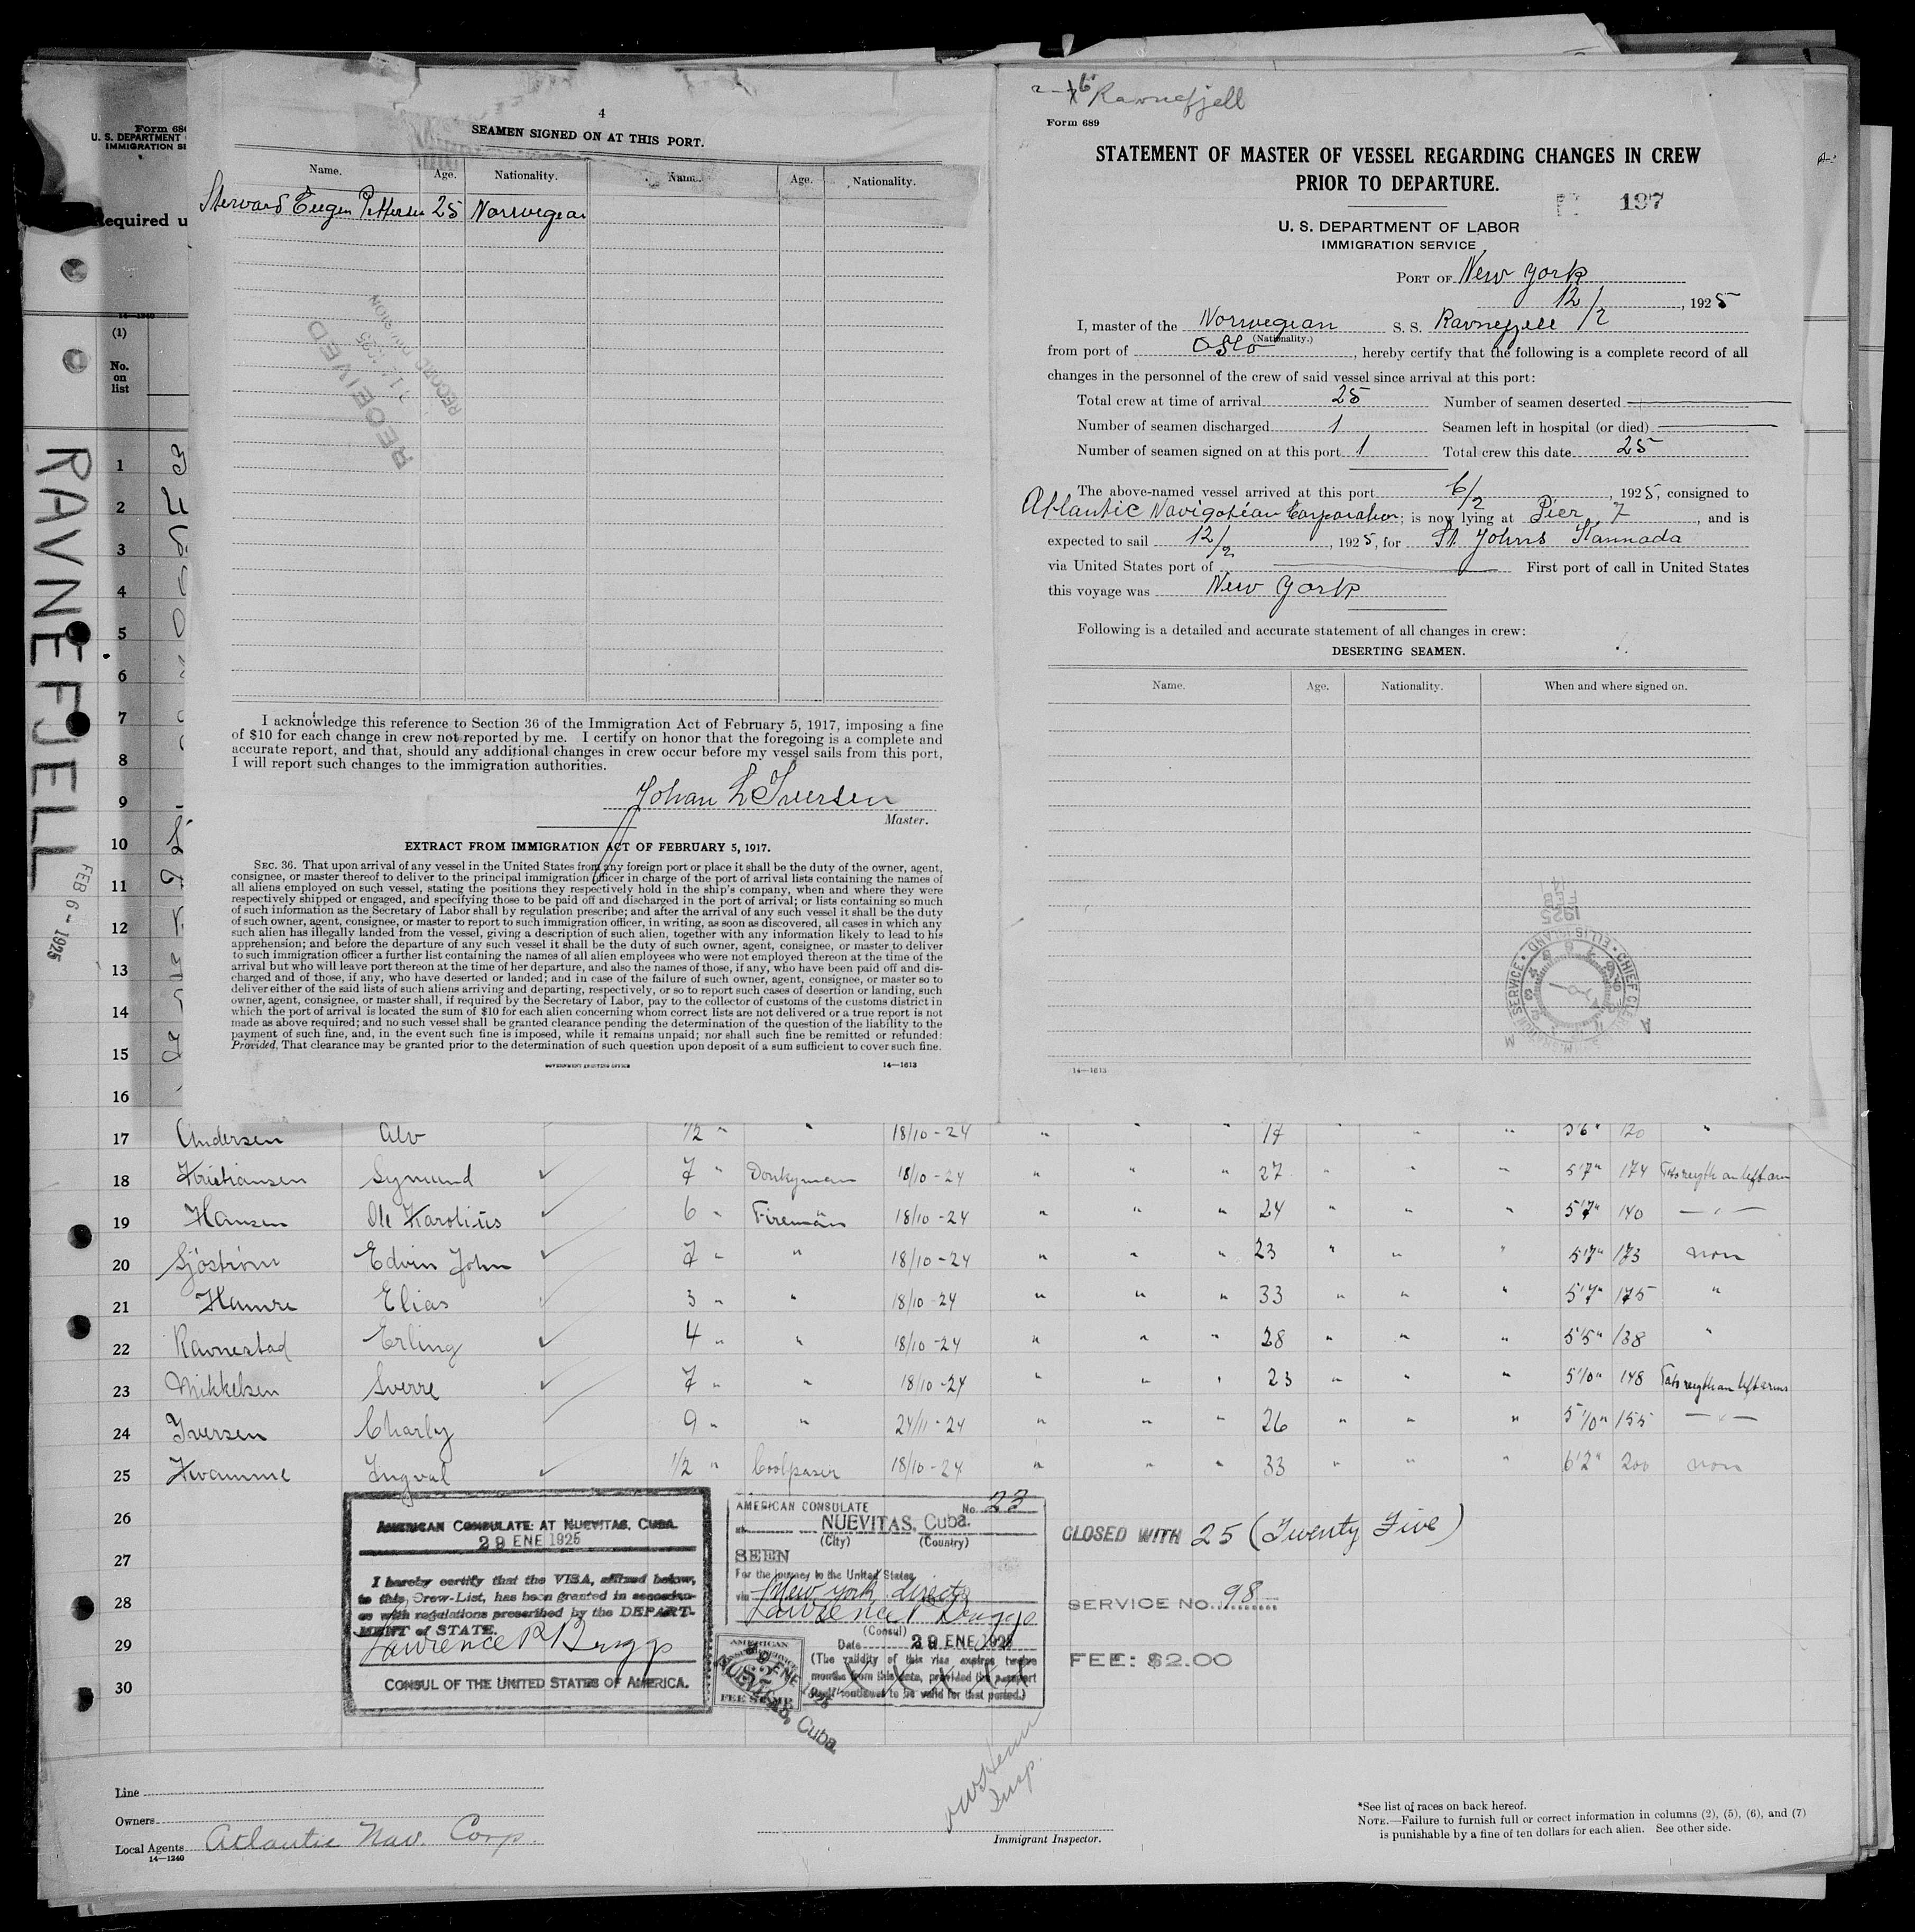 Form 68
U. S. DEPARTMENT
IMMIGRATION SE
Required u
14—1240
(1)
No.
on
list
RAVNEFJELL
FEB 6 - 1925
1
2
3
4
5
6
7
8
9
10
11
12
13
14
15
16
4
SEAMEN SIGNED ON AT THIS PORT.
Name. Age. Nationality. Name. Age. Nationality.
25 Norwegian
RECEIVED
1925
RECORD DIVISION
I acknowledge this reference to Section 36 of the Immigration Act of February 5, 1917, imposing a fine
of $10 for each change in crew not reported by me. I certify on honor that the foregoing is a complete and
accurate report, and that, should any additional changes in crew occur before my vessel sails from this port,
I will report such changes to the immigration authorities.
Johan L Iversen
Master.
EXTRACT FROM IMMIGRATION ACT OF FEBRUARY 5, 1917.
SEC. 36. That upon arrival of any vessel in the United States from any foreign port or place it shall be the duty of the owner, agent,
consignee, or master thereof to deliver to the principal immigration officer in charge of the port of arrival lists containing the names of
all aliens employed on such vessel, stating the positions they respectively hold in the ship's company, when and where they were
respectively shipped or engaged, and specifying those to be paid off and discharged in the port of arrival; or lists containing so much
of such information as the Secretary of Labor shall by regulation prescribe; and after the arrival of any such vessel it shall be the duty
of such owner, agent, consignee, or master to report to such immigration officer, in writing, as soon as discovered, all cases in which any
such alien has illegally landed from the vessel, giving a description of such alien, together with any information likely to lead to his
apprehension; and before the departure of any such vessel it shall be the duty of such owner, agent, consignee, or master to deliver
to such immigration officer a further list containing the names of all alien employees who were not employed thereon at the time of the
arrival but who will leave port thereon at the time of her departure, and also the names of those, if any, who have been paid off and dis-
charged and of those, if any, who have deserted or landed; and in case of the failure of such owner, agent, consignee, or master so to
deliver either of the said lists of such aliens arriving and departing, respectively, or so to report such cases of desertion or landing, such
owner, agent, consignee, or master shall, if required by the Secretary of Labor, pay to the collector of customs of the customs district in
which the port of arrival is located the sum of $10 for each alien concerning whom correct lists are not delivered or a true report is not
made as above required; and no such vessel shall be granted clearance pending the determination of the question of the liability to the
payment of such fine, and, in the event such fine is imposed, while it remains unpaid; nor shall such fine be remitted or refunded:
Provided, That clearance may be granted prior to the determination of such question upon deposit of a sum sufficient to cover such fine.
GOVERNMENT PRINTING OFFICE 14—1613
Ravnefjell
Form 689
STATEMENT OF MASTER OF VESSEL REGARDING CHANGES IN CREW
PRIOR TO DEPARTURE.
197
U. S. DEPARTMENT OF LABOR
IMMIGRATION SERVICE
PORT OF New York
12/2, 1925
I, master of the Norwegian S. S. Ravnefjell
(Nationality.)
from port of Oslo, hereby certify that the following is a complete record of all
changes in the personnel of the crew of said vessel since arrival at this port:
Total crew at time of arrival 25 Number of seamen deserted
Number of seamen discharged 1 Seamen left in hospital (or died)
Number of seamen signed on at this port 1 Total crew this date 25
The above-named vessel arrived at this port 6/2, 1925, consigned to
Atlantic Navigation Corporation; is now lying at Pier 7, and is
expected to sail 12/2, 1925, for St. Johns Kannada
via United States port of First port of call in United States
this voyage was New York
Following is a detailed and accurate statement of all changes in crew:
DESERTING SEAMEN.
Name. Age. Nationality. When and where signed on.
1925
ELLIS ISLAND
14—1613
17 Andersen Alv 1/2 " " 18/10-24 " " " 17 " " " 5'6" 120 "
18 Kristiansen Sigmund 7 " Donkyman 18/10-24 " " " 27 " " " 5'7" 174
19 Hansen Ole Karolius 6 " Fireman 18/10-24 " " " 24 " " " 5'7" 140 — " —
20 Sjöström Edvin John 7 " " 18/10-24 " " " 23 " " " 5'7" 173 non
21 Hamre Elias 3 " " 18/10-24 " " " 33 " " " 5'7" 175 "
22 Ravnestad Erling 4 " " 18/10-24 " " " 28 " " " 5'5" 138 "
23 Mikkelsen Sverre 7 " " 18/10-24 " " " 23 " " " 5'10" 148
24 Iversen Charly 9 " " 24/11-24 " " " 26 " " " 5'10" 155 — " —
25 Kvamme Ingval 1/2 " Coolpaser 18/10-24 " " " 33 " " " 6'2" 200 non
26
27
28
29
30
AMERICAN CONSULATE AT NUEVITAS, CUBA.
29 ENE 1925
I hereby certify that the VISA, affixed below,
to this Crew-List, has been granted in accordan-
ce with regulations prescribed by the DEPART-
MENT of STATE.
Lawrence P Briggs
CONSUL OF THE UNITED STATES OF AMERICA.
AMERICAN CONSULATE No. 23
at NUEVITAS, Cuba.
(City) (Country)
SEEN
For the journey to the United States
via New York direct
Lawrence P Briggs
(Consul)
Date 29 ENE 1925
(The validity of this visa expires twelve
months from this date, provided the passport
itself continues to be valid for that period.)
AMERICAN
$2
FEE STAMP
29 ENE 1925
NUEVITAS, Cuba.
CLOSED WITH 25 (Twenty Five)
SERVICE NO. 98
FEE: $2.00
Insp.
Line
Owners
Local Agents Atlantic Nav. Corp.
14—1240
Immigrant Inspector.
*See list of races on back hereof.
NOTE.—Failure to furnish full or correct information in columns (2), (5), (6), and (7)
is punishable by a fine of ten dollars for each alien. See other side.